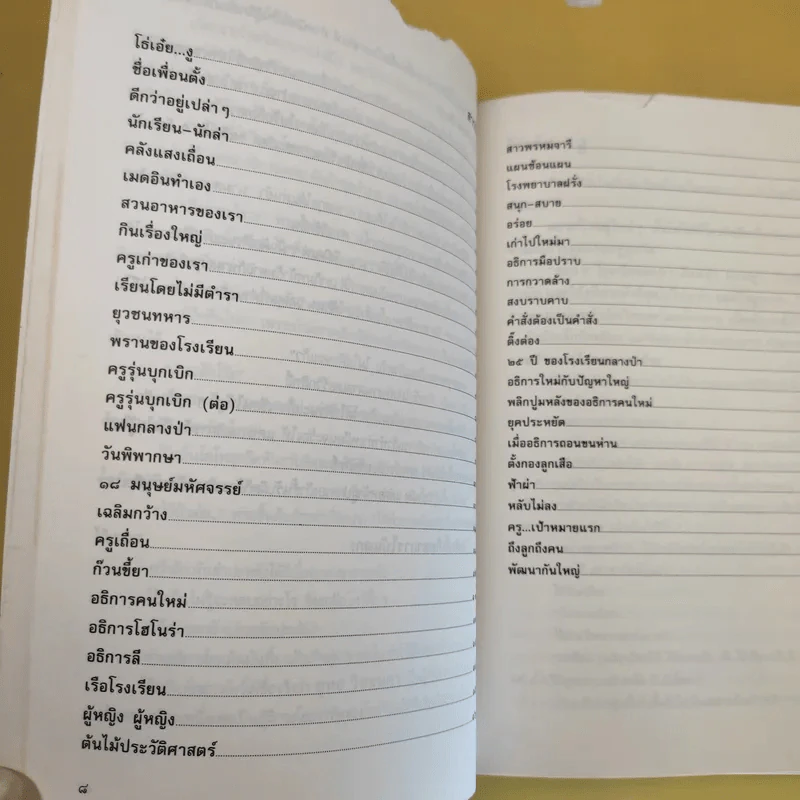 โธ่เอ๋ย...งู
ชื่อเพื่อนตั้ง
ดีกว่าอยู่เปล่าๆ
นักเรียน-นักล่า
คลังแสงเถื่อน
เมดอินทำเอง
สวนอาหารของเรา
กินเรื่องใหญ่
ครูเก่าของเรา
เรียนโดยไม่มีตำรา
ยุวชนทหาร
พรานของโรงเรียน
ครูรุ่นบุกเบิก
ครูรุ่นบุกเบิก (ต่อ)
แฟนกลางป่า
วันพิพากษา
๑๘ มนุษย์มหัศจรรย์
เฉลิมกว้าง
ครูเถื่อน
ก๊วนขี้ยา
อธิการคนใหม่
อธิการโฮโนร่า
อธิการลี
เรือโรงเรียน
ผู้หญิง ผู้หญิง
ต้นไม้ประวัติศาสตร์
๘
สาวพรหมจารี
แผนซ้อนแผน
โรงพยาบาลฝรั่ง
สนุก-สบาย
อร่อย
เก่าไปใหม่มา
อธิการมือปราบ
การกวาดล้าง
สงบราบคาบ
คำสั่งต้องเป็นคำสั่ง
ติ๊งต่อง
๒๕ ปี ของโรงเรียนกลางป่า
อธิการใหม่กับปัญหาใหญ่
พลิกปูมหลังของอธิการคนใหม่
ยุคประหยัด
เมื่ออธิการถอนขนห่าน
ตั้งกองลูกเสือ
ฟ้าผ่า
หลับไม่ลง
ครู...เป้าหมายแรก
ถึงลูกถึงคน
พัฒนากันใหญ่